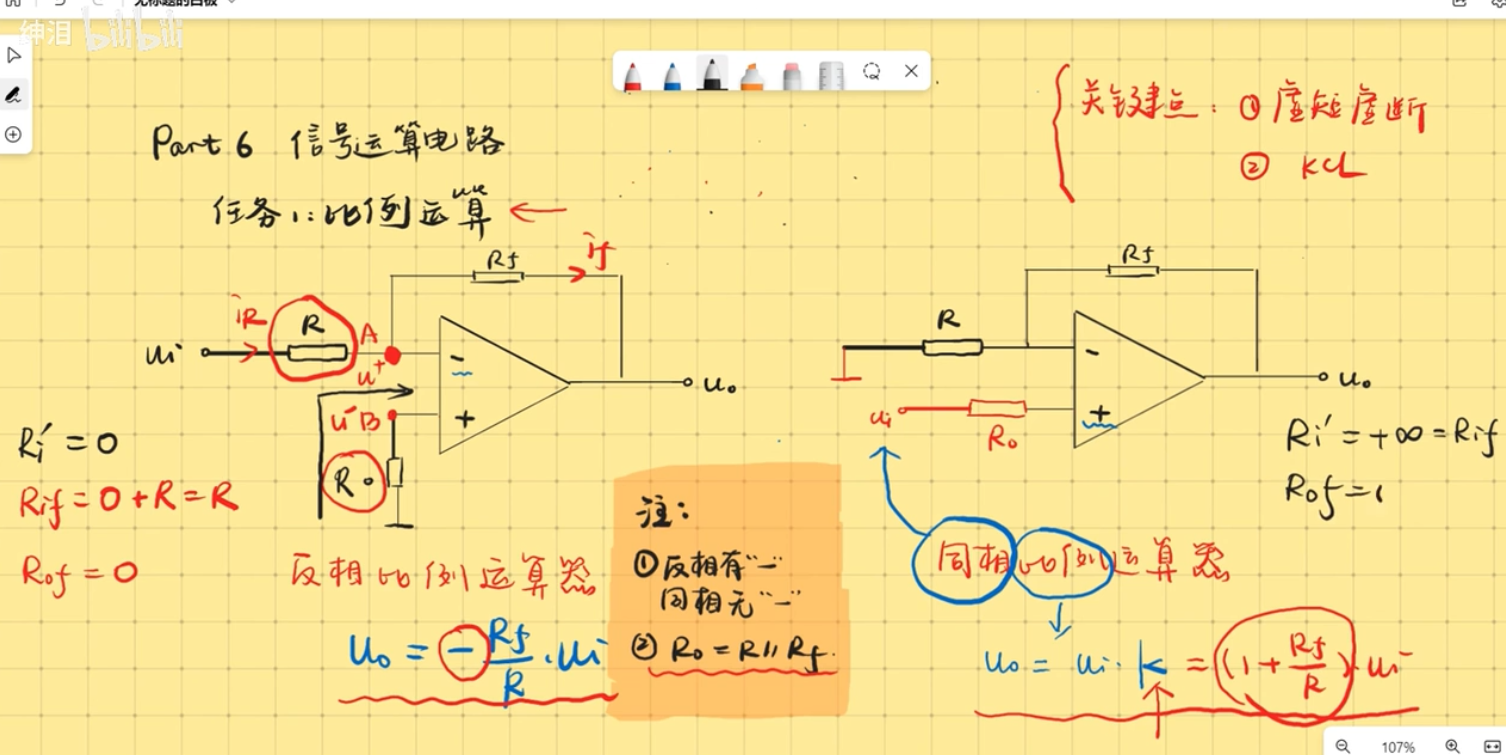 无标题的白板
绅泪 bilibili
Part 6 信号运算电路
任务1:比例运算
关键点: ① 虚短虚断
② KCL
Rf
if
iR
R
A
ui
u+
-
u-
B
+
uo
R。
Ri' = 0
Rif = 0 + R = R
Rof = 0
反相比例运算器
uo = - Rf/R · ui
注:
①反相有“-”
同相无“-”
② Ro = R // Rf.
Rf
R
-
ui
Ro
+
uo
Ri' = +∞ = Rif
Rof = (
同相比例运算器
uo = ui · k = (1 + Rf/R) · ui
107%